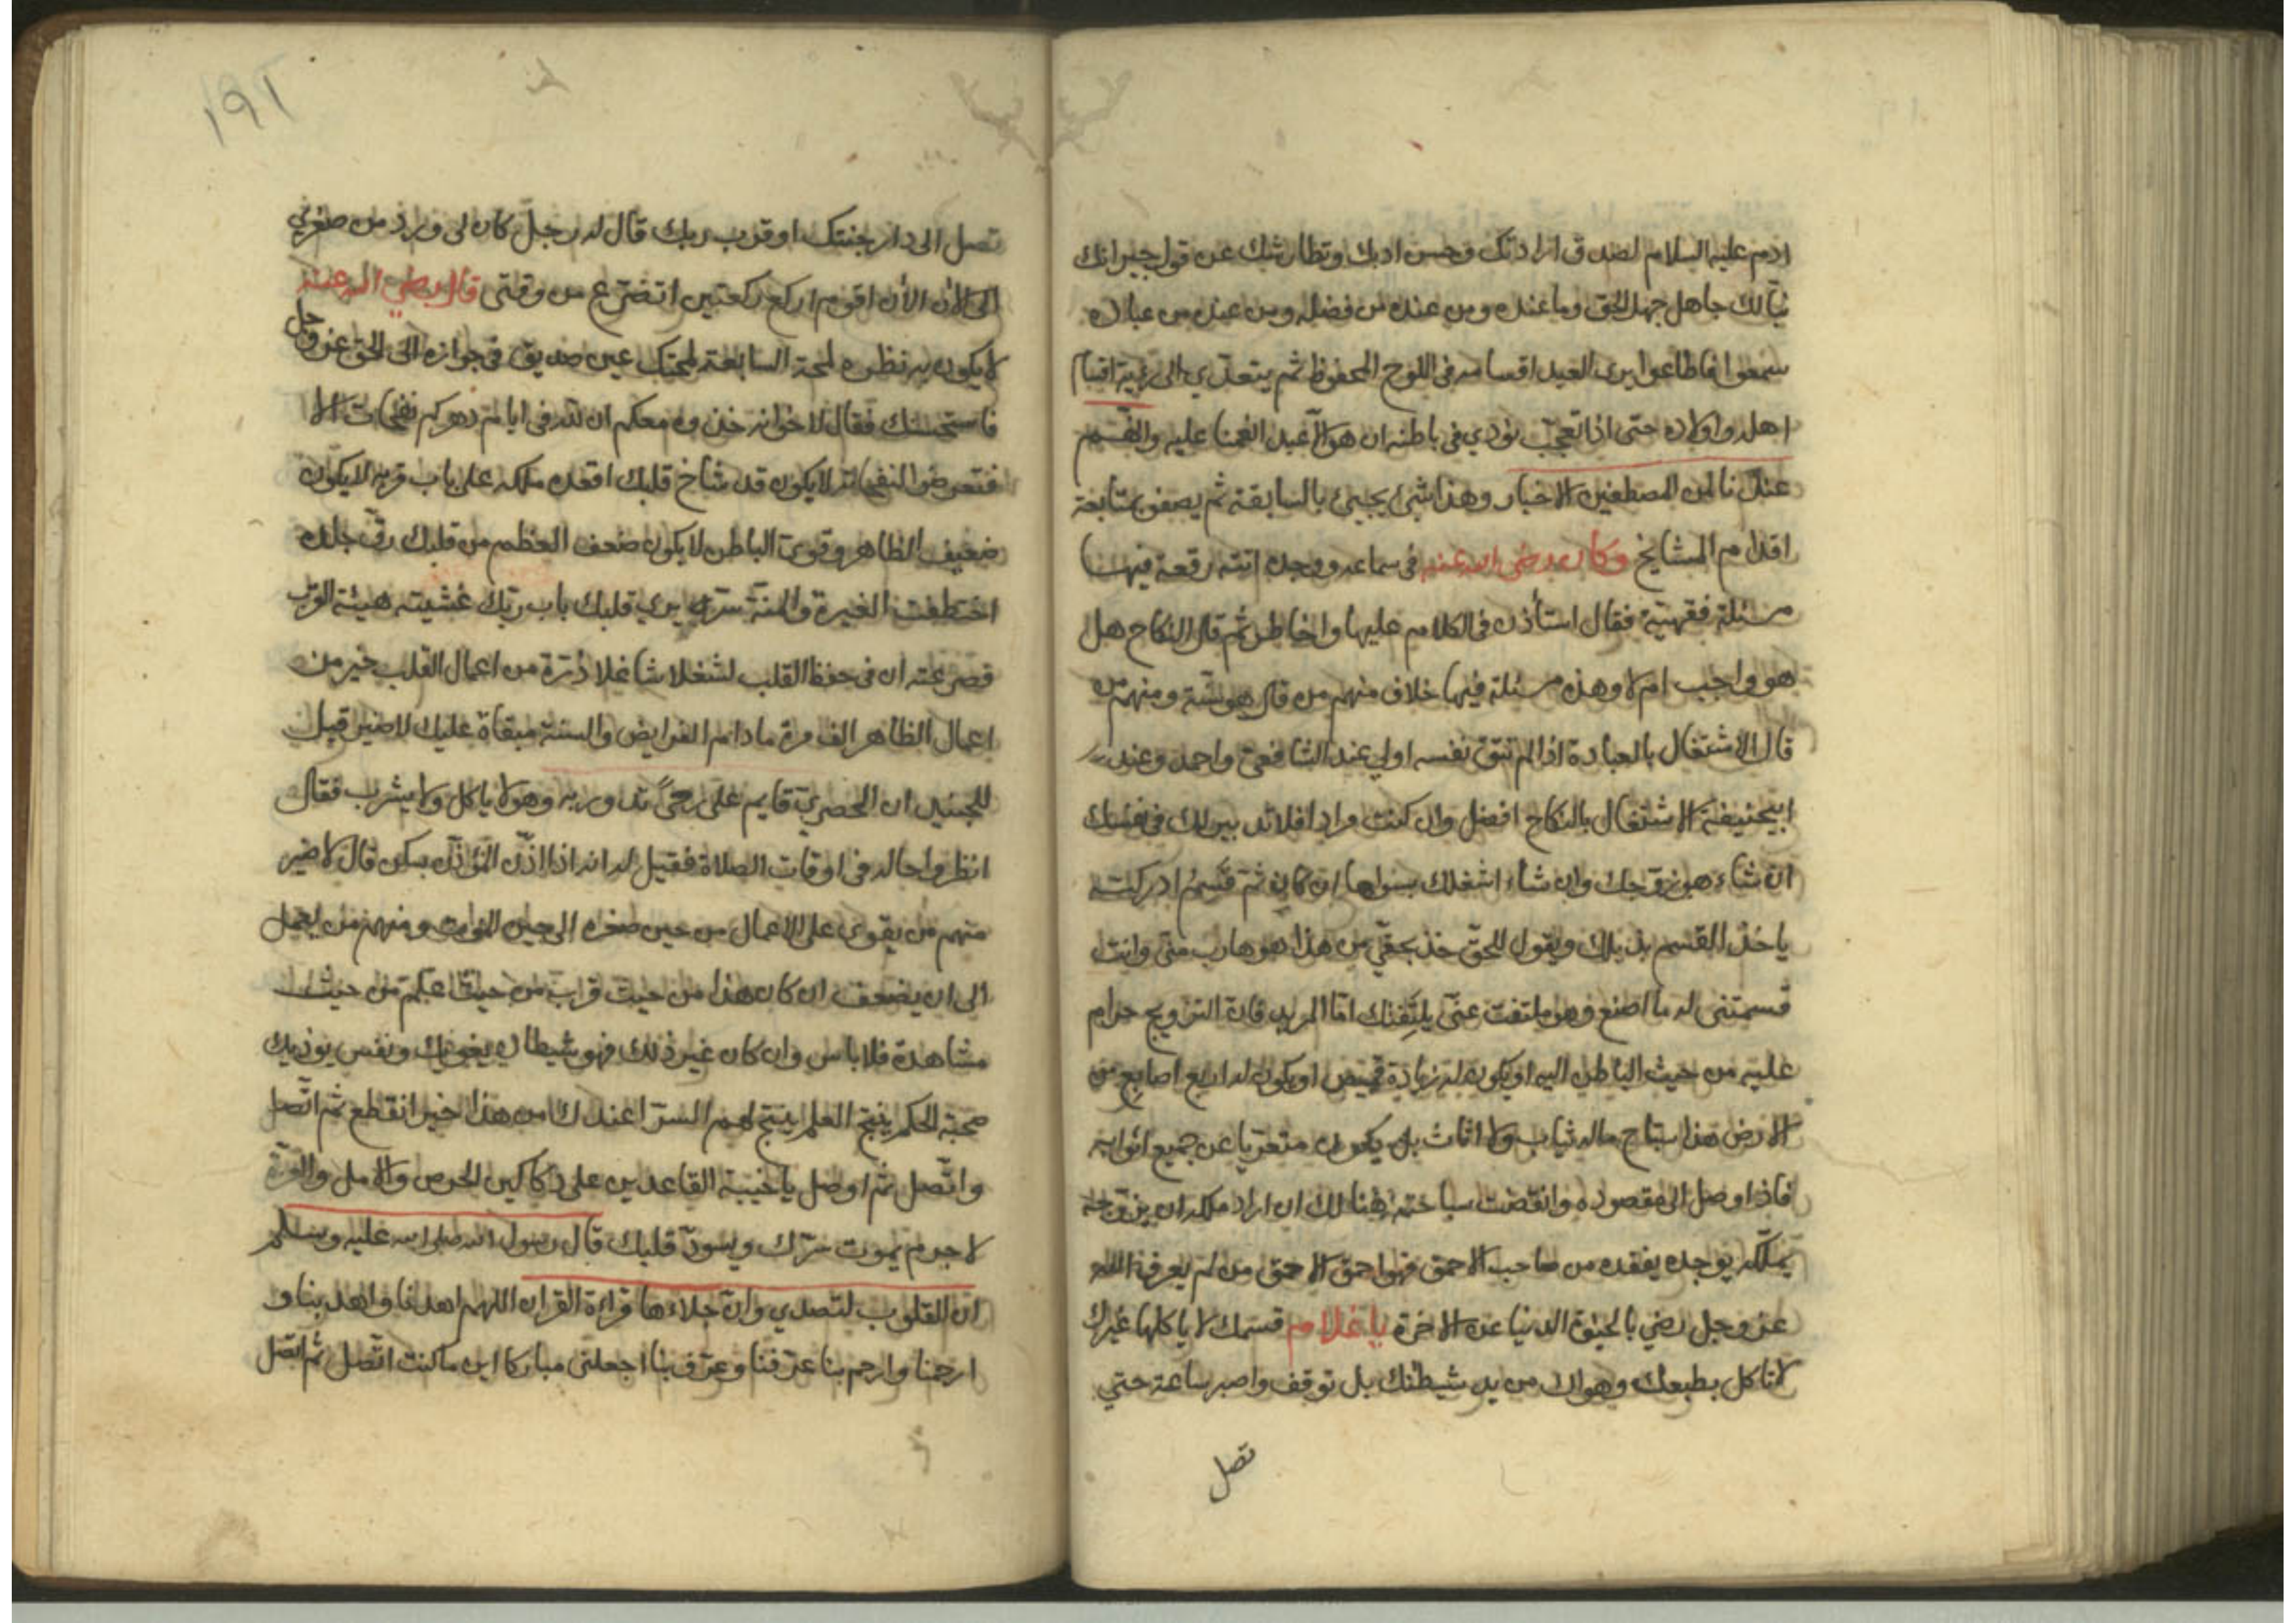 ادم عليه السلام لصدق ارادتك وحسن ادبك وتطارشك عن قول جيرانك
نيالك جاهل جهل الحق وما عنده ومن عنده من فضله ومن عبد من عباده
سمعوا فاطاعوا يرى العبد اقسامه في اللوح المحفوظ ثم يتعدى الى رؤية اقسام
اهله واولاده حتى اذا تعجب نودي في باطنه ان هو الا عبد انعمنا عليه وانهم
عندنا لمن المصطفين الاخيار وهذا شيء يجيئ بالسابقة ثم يصفو بمتابعة
اقدام المشايخ وكان رضى الله عنه في سماعه ووجده اتته رقعة فيها
مسئلة فقهية فقال استأذن في الكلام عليها واخاطر ثم قال النكاح هل
هو واجب ام لا وهذه مسئلة فيها خلاف منهم من قال هو سنة ومنهم من
قال الاشتغال بالعبادة اذا لم تتق نفسه اولى عند الشافعي واحمد وعند
ابيحنيفة الاشتغال بالنكاح افضل وان كنت مرادا فلا تدبير لك في نفسك
ان شاء هو زوجك وان شاء اشغلك بسواها ان كان ثم قسم ادركته
ياخذ القسم بذيلك ويقول للحق خذ بحقي من هذا هو هارب منى وانت
قسمتنى له ما اصنع وهو ملتفت عنى يلتفتك اما المريد فان التزويج حرام
عليه من حيث الباطن اليه او يكون له زيادة قميص او يكون له اربع اصابع من
الارض هذا سياح ماله ثياب ولا اثاث بل يكون متعريا عن جميع اثوابه
فاذا وصل الى مقصوده وانقضت سياحته هنالك ان اراد ملكه ان يزوجه
يملكه يوجده يفقده من صاحب الاحمق فهو احمق الاحمق من لم يعرف الله
عز وجل رضي بالحيوة الدنيا عن الاخرة يا غلام قسمك لا ياكلها غيرك
لا تاكل بطبعك وهواك من يد شيطنك بل توقف واصبر ساعة حتي
تصل
١٩٢
تصل الى دار جنتك او قرب ربك قال له رجل كان لى ورد من صغري
الى الان الأن اقوم اركع ركعتين اتضرع من وقتى قال رضي الله عنه
لا يكون به نظره لمحة السابعة لمحتك عين صديق في جوازه الى الحق عز وجل
فاستحسنك فقال لاخوانه خذوه معكم ان لله في ايام دهركم نفحات الا
فتعرضوا لنفحاته لا يكون قد شاخ قلبك اقعده ملكه على باب قربه لا يكون
ضعيف الظاهر وقوى الباطن لا يكون ضعف العظم من قلبك رق جلده
اختطفت الغيرة والمنة سره يرى قلبك باب ربك غشيته هيئة القرب
فصرعته ان في حفظ القلب لشغلا شاغلا ذرة من اعمال القلب خير من
اعمال الظاهر الف مرة مادام الفرايض والسنة مبقاة عليك لا ضير قيل
للجنيد ان الحصري قايم على رحى تدور به وهو لا ياكل ولا يشرب فقال
انظروا حاله في اوقات الصلاة فقيل له انه اذا اذن المؤذن يسكن قال لا ضير
منهم من يقوى على الاعمال من حين صغره الى حين الموت ومنهم من يعمل
الى ان يضعف ان كان هذا من حيث قراب من حيث علم من حيث
مشاهدة فلا باس وان كان غير ذلك فهو شيطان يغويك ونفس يوذيك
صحبة الحكم ينتج العلم ينتج لهم السر اعندك من هذا خبر انقطع ثم اتصل
واتصل ثم اوصل يا خيبة القاعدين على دكاكين الحرص والامل والعزة
لا جرم يموت سرك ويسود قلبك قال رسول الله صلى الله عليه وسلم
ان القلوب لتصدي وان جلاءها قراءة القران اللهم اهدنا واهد بنا و
ارحمنا وارحم بنا عرفنا وعرف بنا اجعلنى مباركا اين ما كنت اتصل ثم اتصل